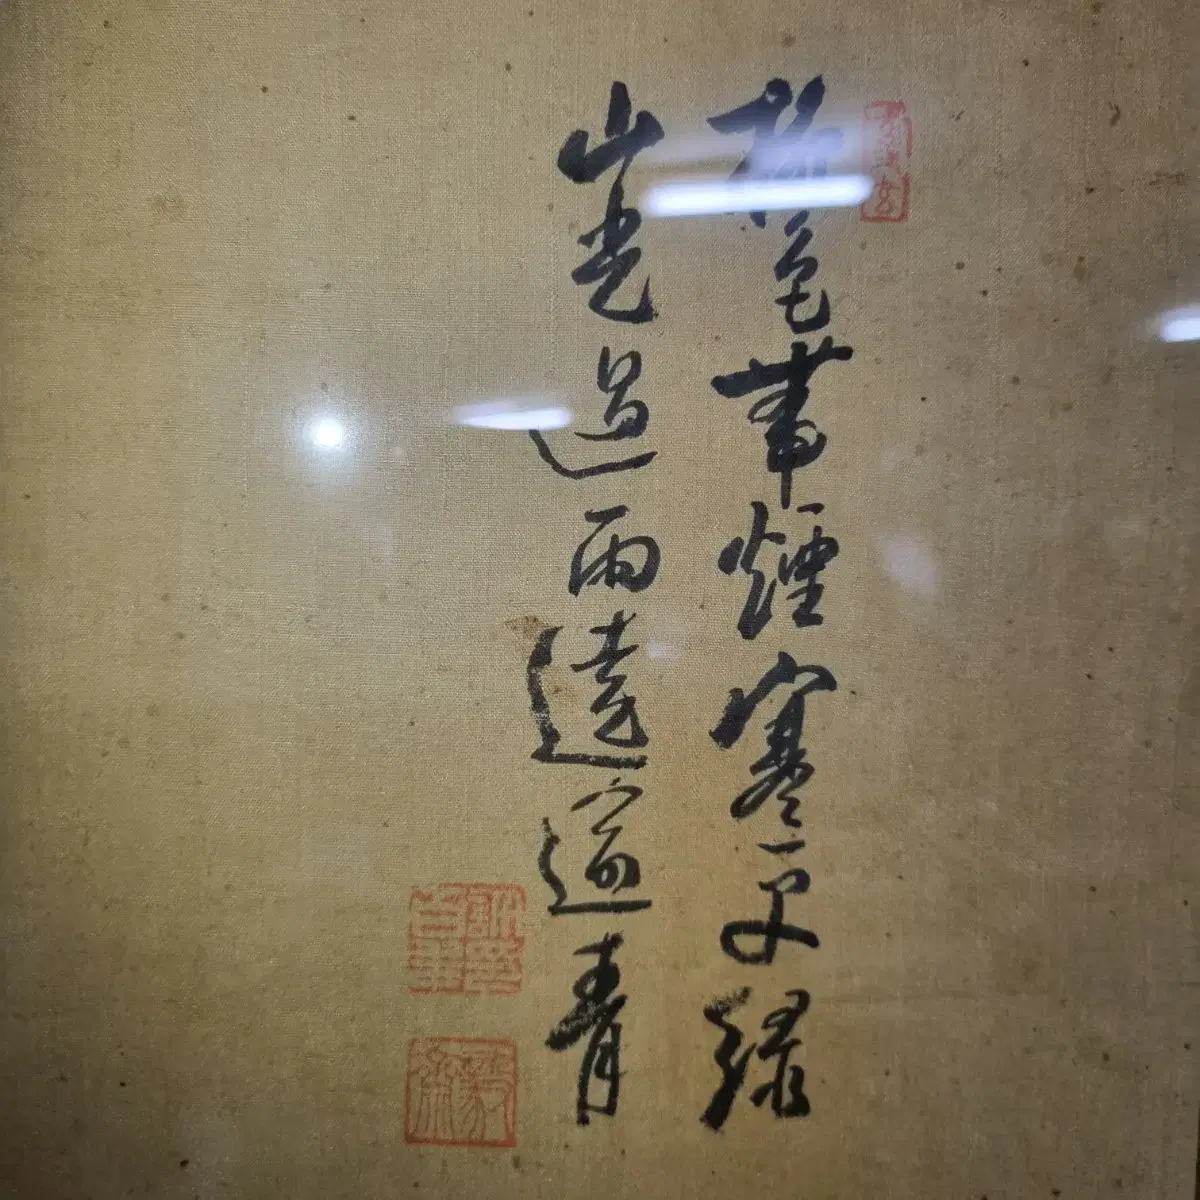 色帶煙寒更綠
山光過雨遠逾青